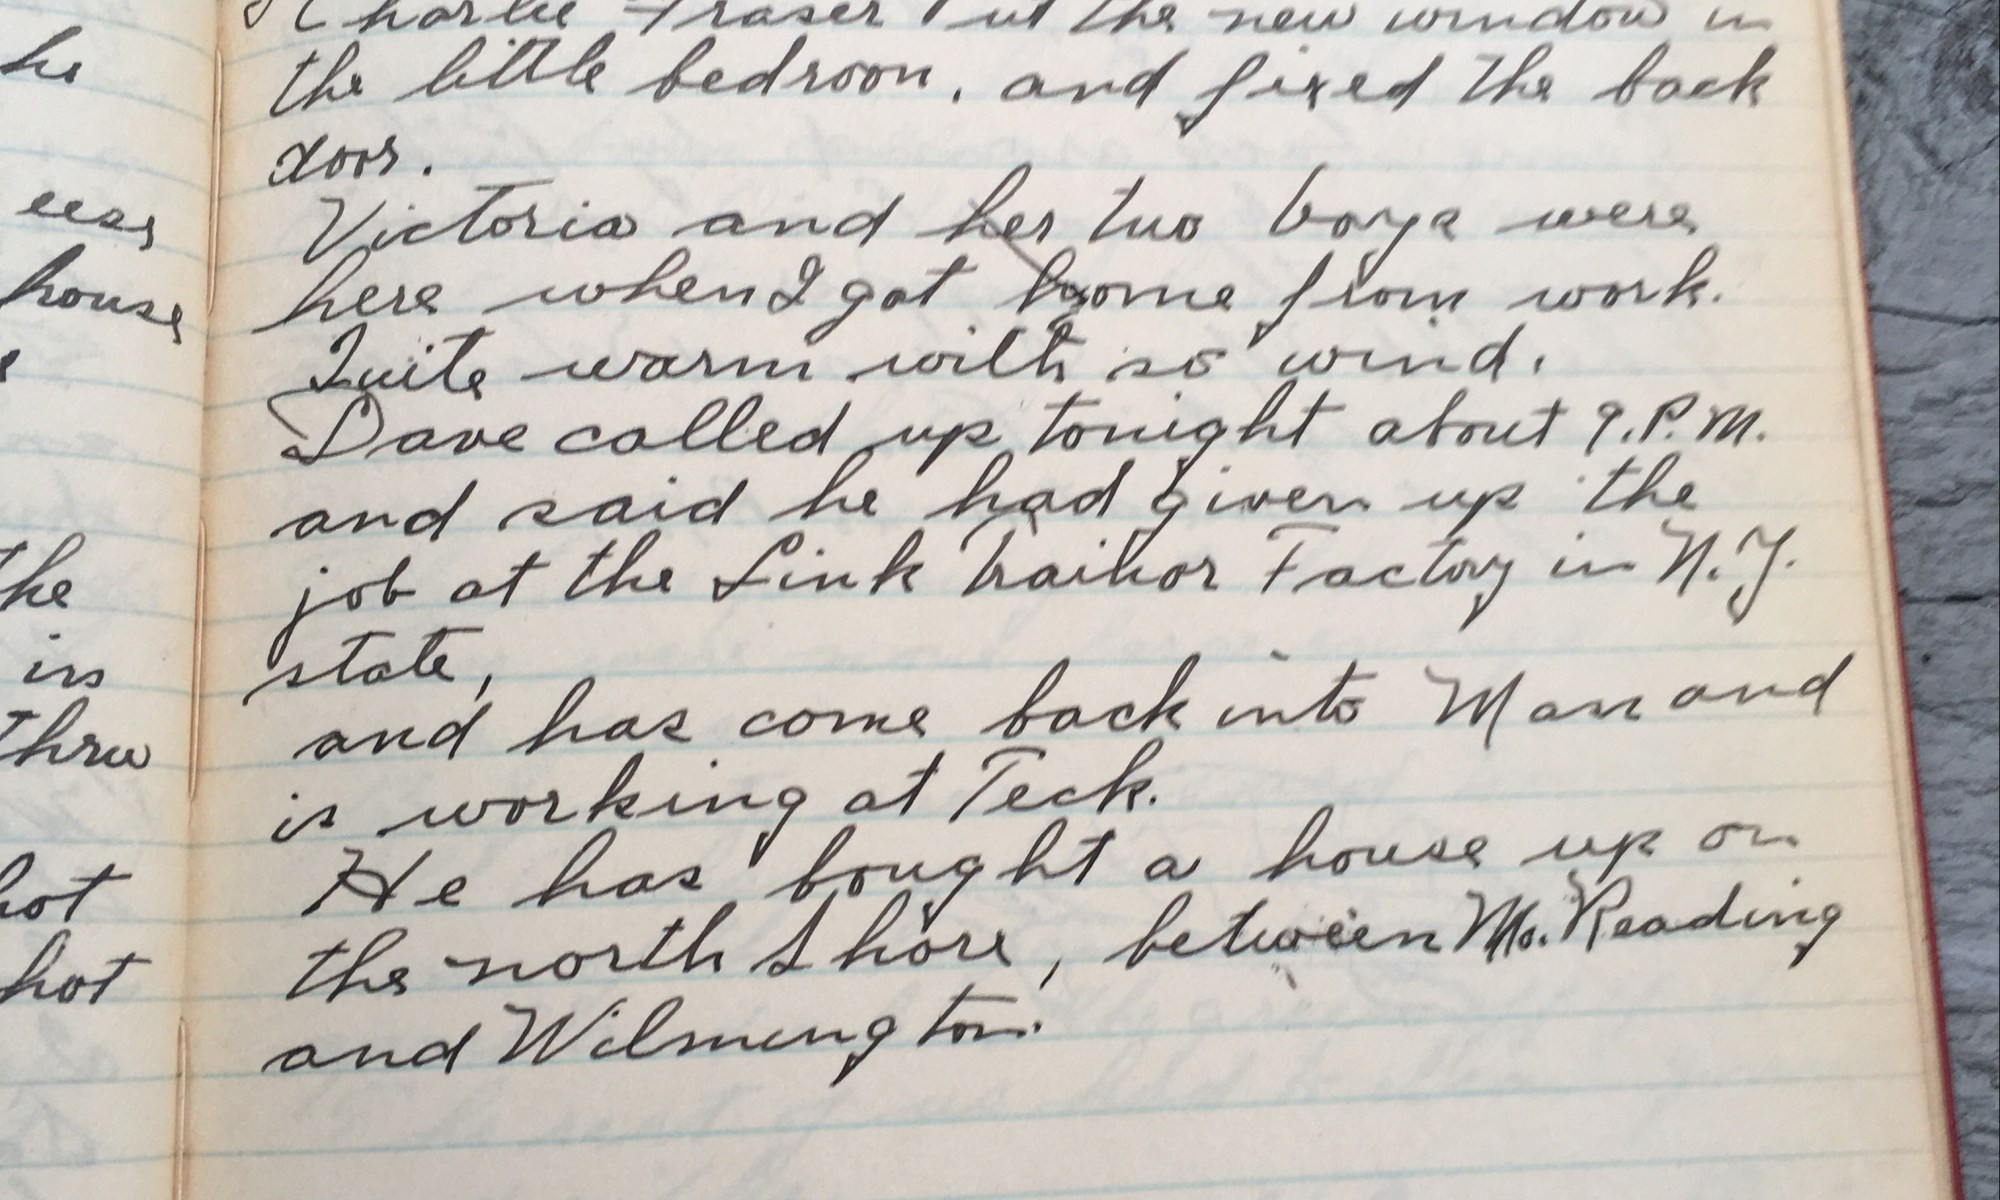 he
eess
house
the
in
thru
hot
hot
Charlie Fraser Put the new window in
the little bedroom, and fixed the back
door.
Victoria and her two boys were
here when I got home from work.
Quite warm with so wind.
Dave called up tonight about 9.P.M.
and said he had given up the
job at the Link Trainor Factory in N.Y.
state,
and has come back into Man and
is working at Teck.
He has bought a house up on
the north Shore, between No. Reading
and Wilmington.